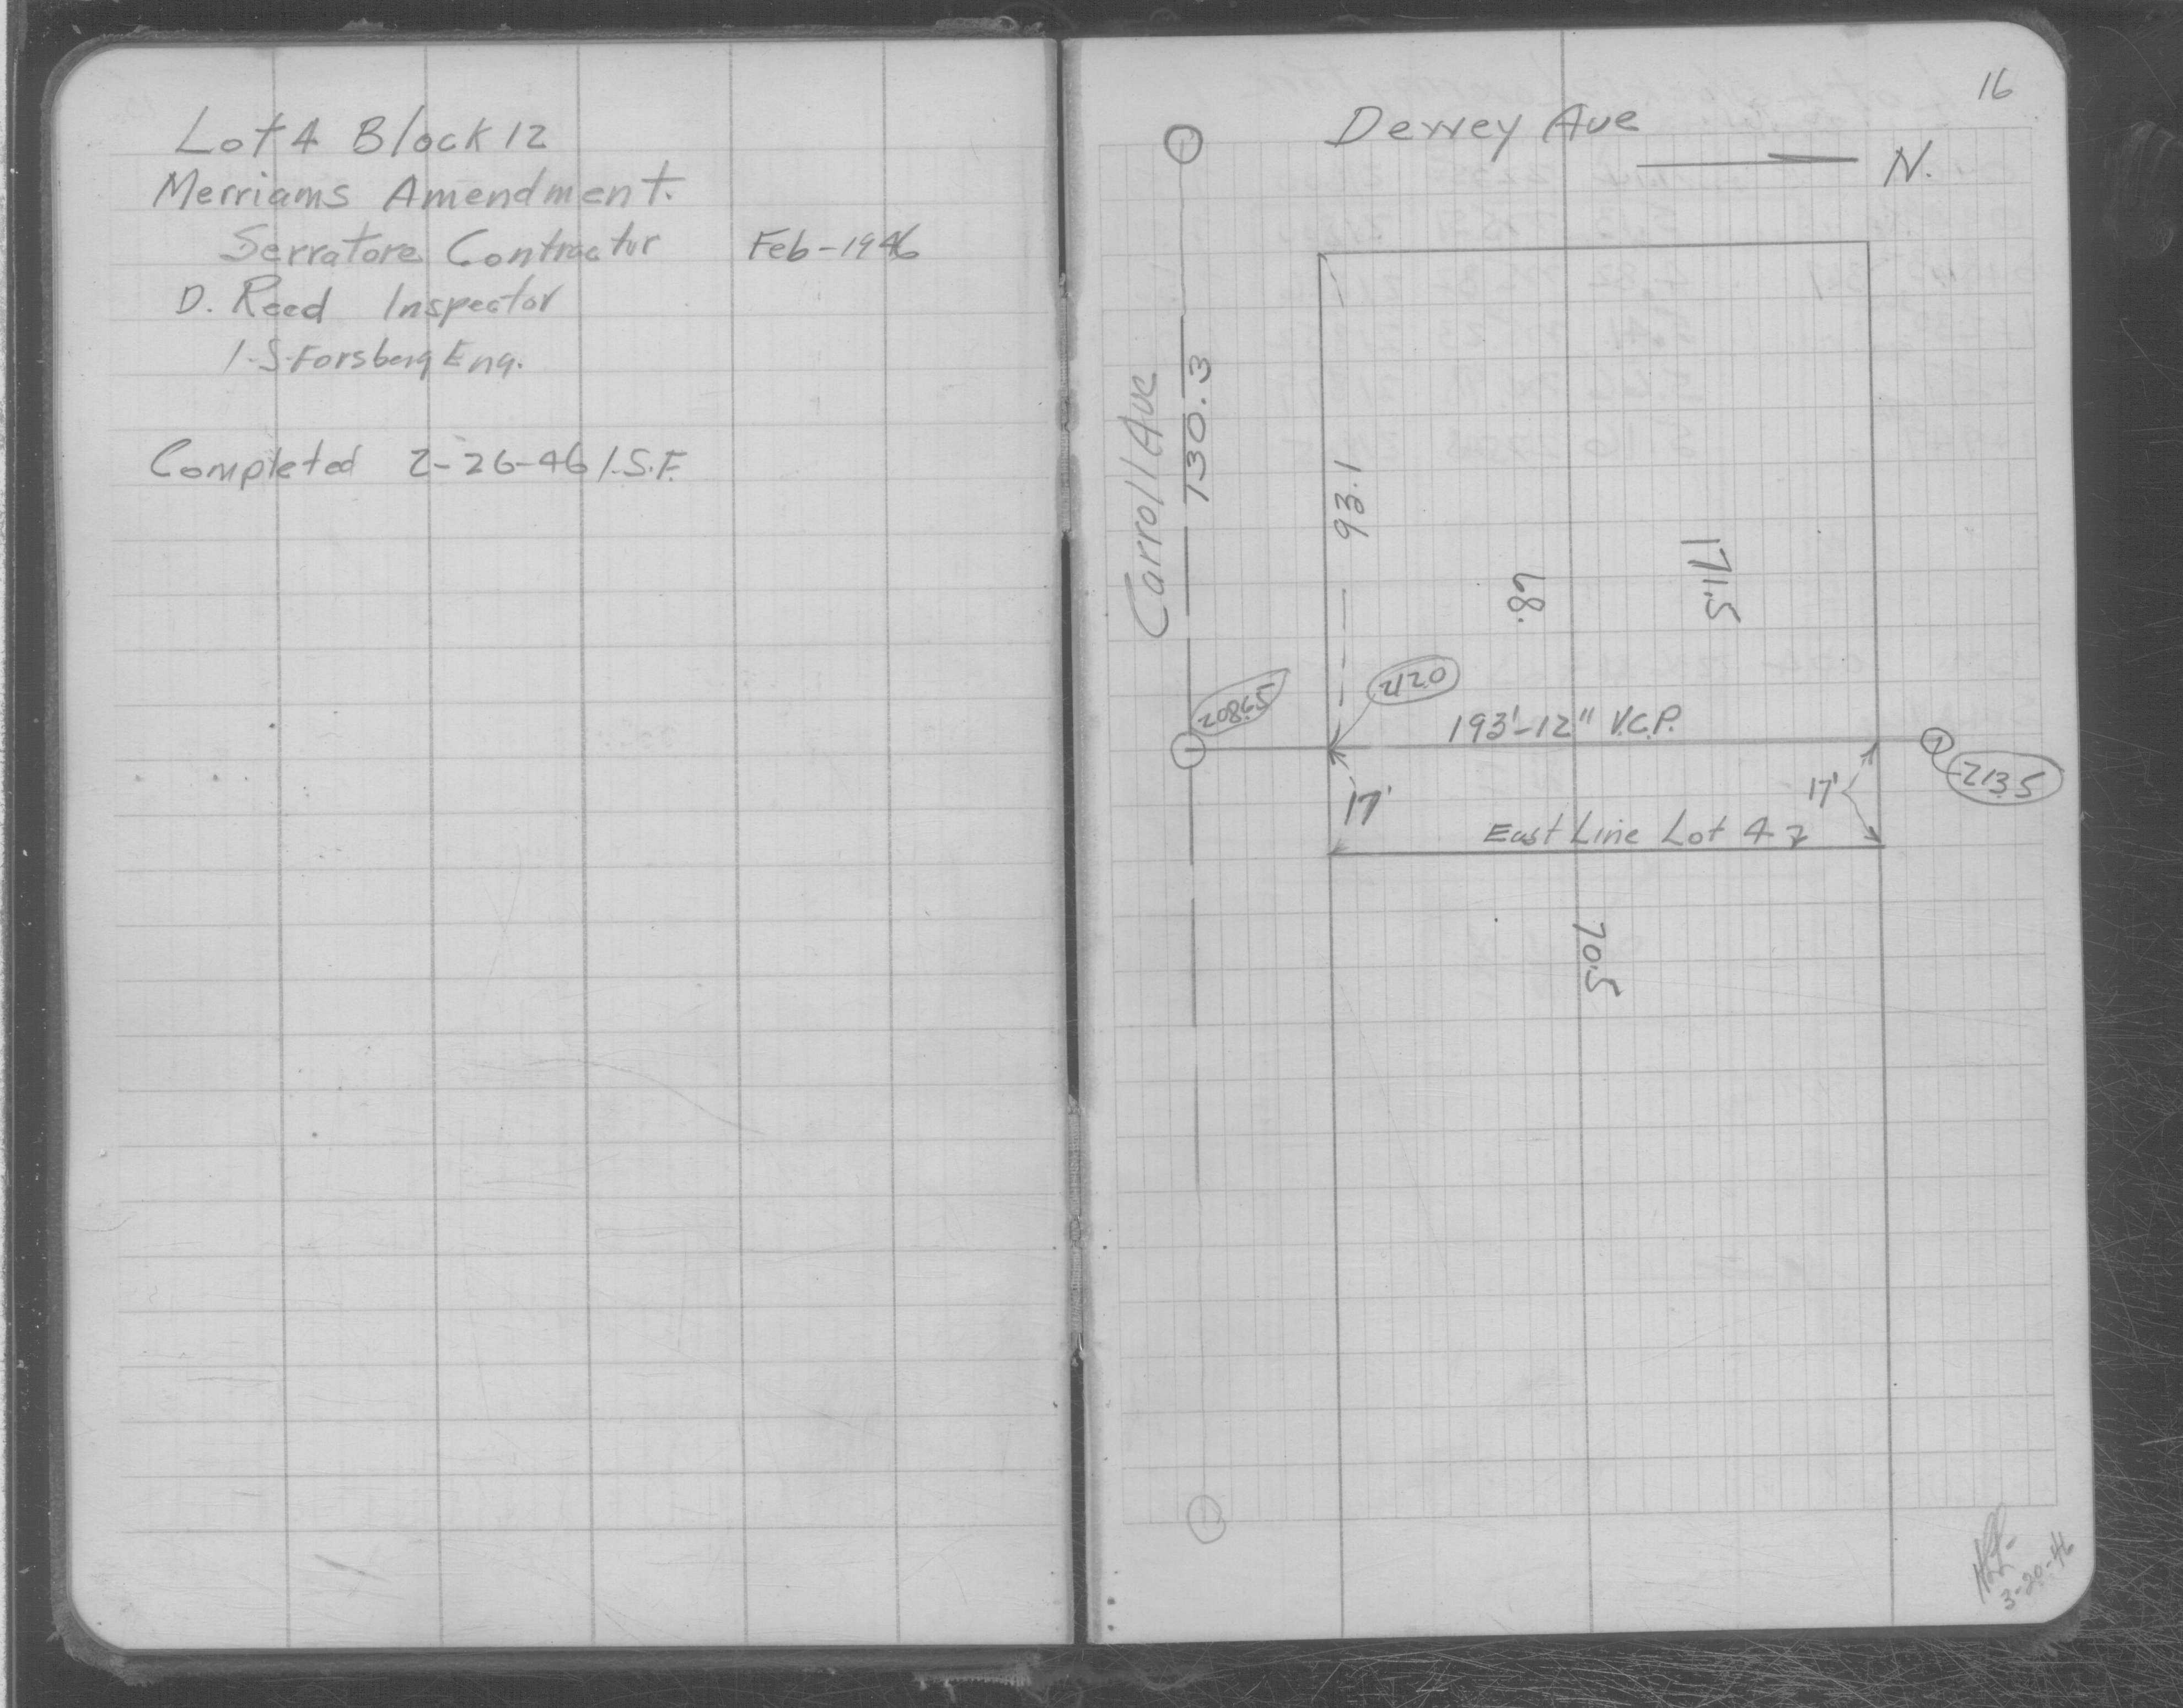 Lot 4 Block 12
Merriams Amendment.
Serratore Contractor Feb-1946
D. Reed Inspector
I.S. Forsberg Eng.
Completed 2-26-46 I.S.F.
16
Dewey Ave
N.
Carroll Ave
130.3
93.1
68.
171.5
208.65
212.0
193'-12" V.C.P.
213.5
17'
17'
East Line Lot 4
70.5
3-20-46